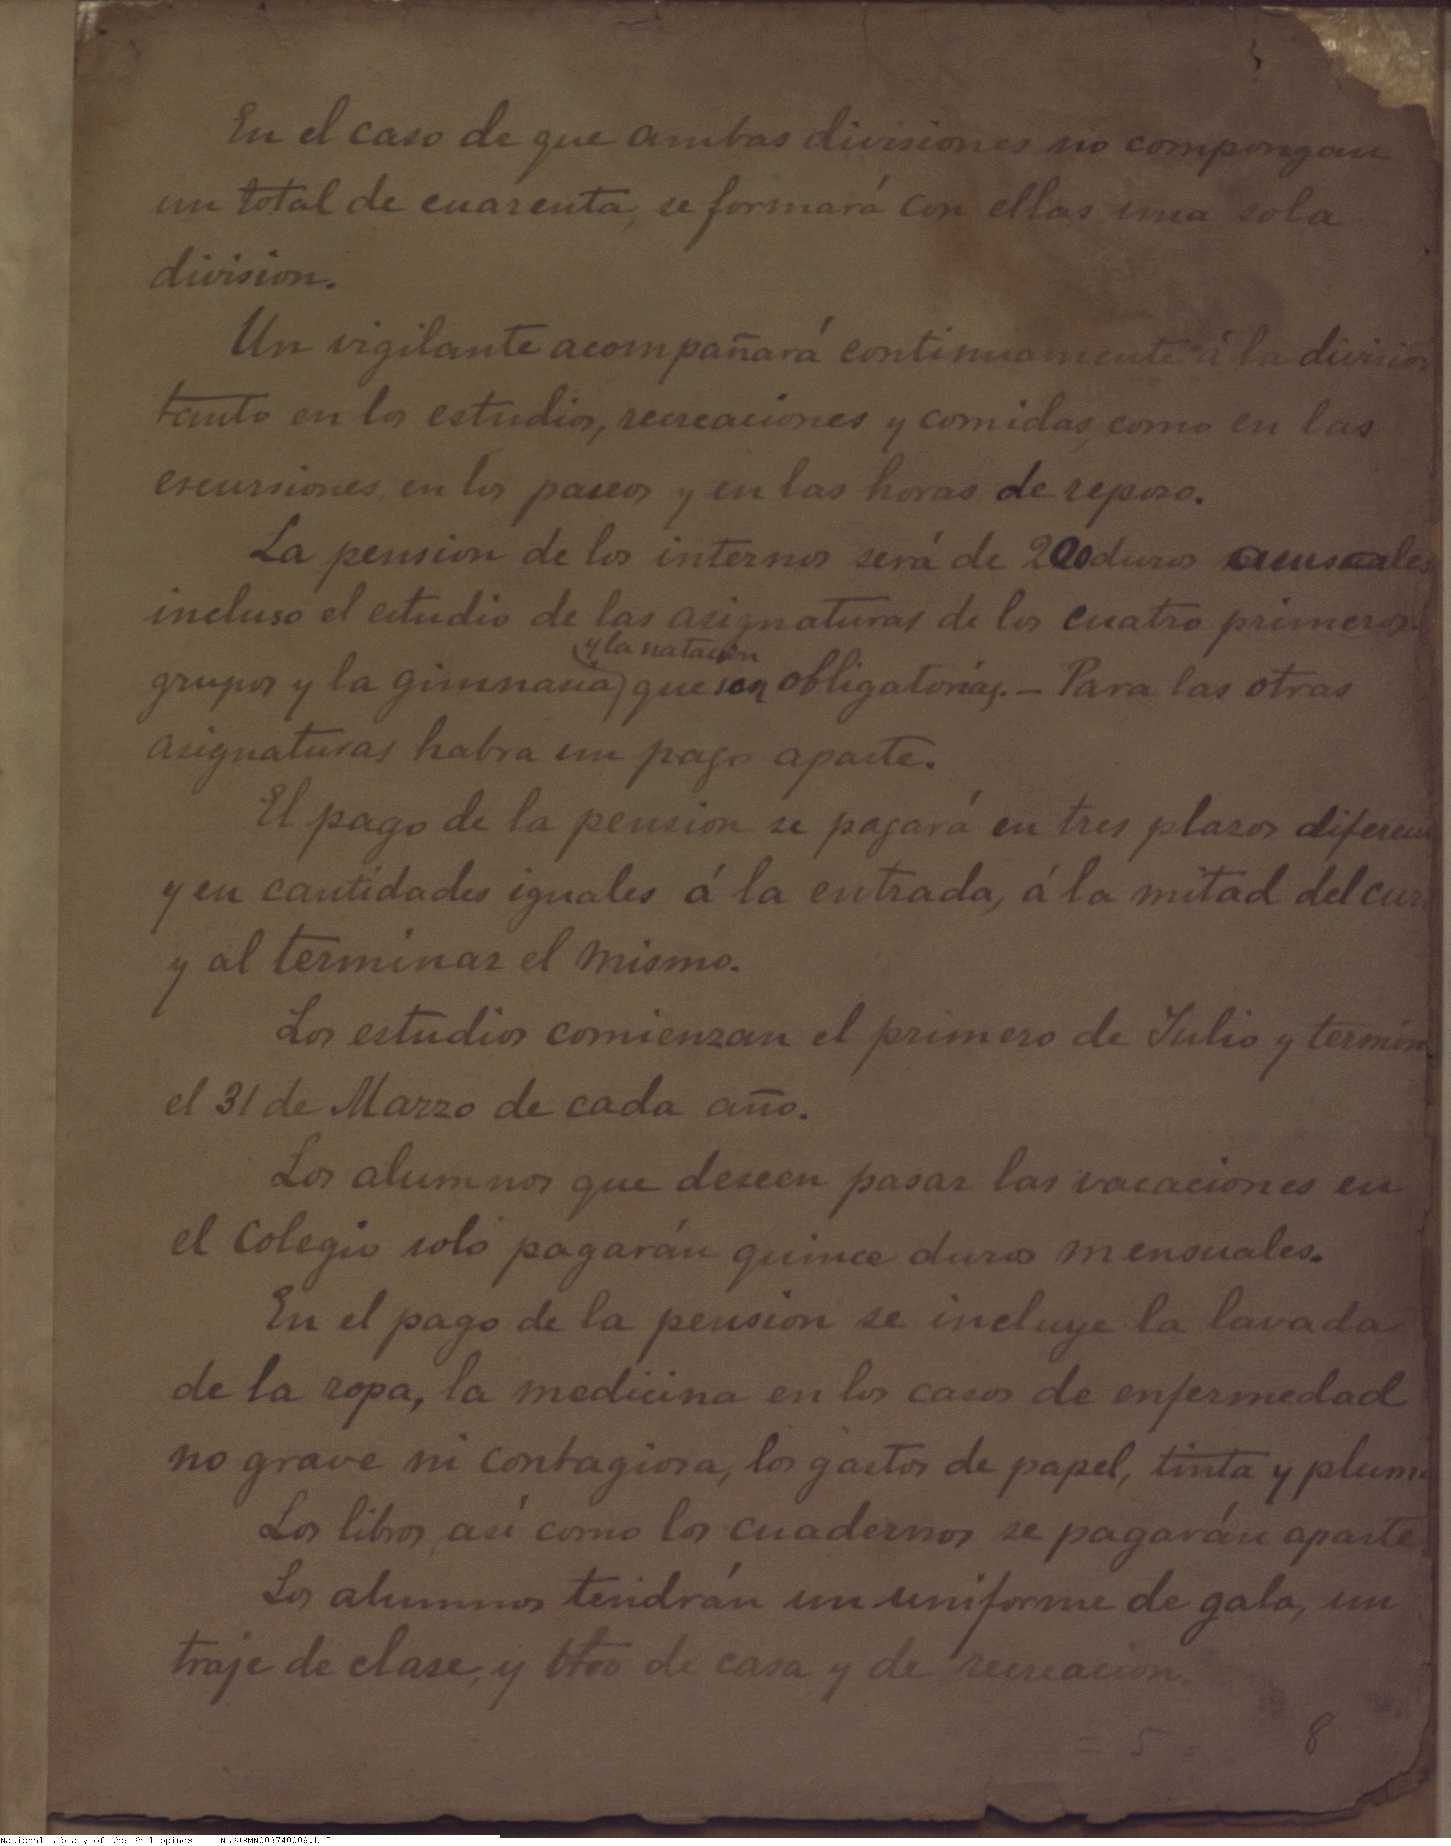 En el caso de que ambas divisiones no compongan
un total de cuarenta, se formará con ellas una sola
division.
Un vigilante acompañará continuamente á la division
tanto en los estudios, recreaciones y comidas, como en las
escursiones, en los paseos y en las horas de reposo.
La pension de los internos será de 200 duros anuales
incluso el estudio de las asignaturas de los cuatro primeros
(y la natacion
grupos y la gimnasia) que son obligatorias. — Para las otras
asignaturas habra un pago aparte.
El pago de la pension se pagará en tres plazos diferen
y en cantidades iguales á la entrada, á la mitad del curs
y al terminar el mismo.
Los estudios comienzan el primero de Julio y termin
el 31 de Marzo de cada año.
Los alumnos que deseen pasar las vacaciones en
el Colegio solo pagarán quince duros mensuales.
En el pago de la pension se incluye la lavada
de la ropa, la medicina en los casos de enfermedad
no grave ni contagiosa, los gastos de papel, tinta y pluma
Los libros, así como los cuadernos se pagarán aparte.
Los alumnos tendrán un uniforme de gala, un
traje de clase, y otro de casa y de recreacion.
= 5 = 8
National Library of the Philippines